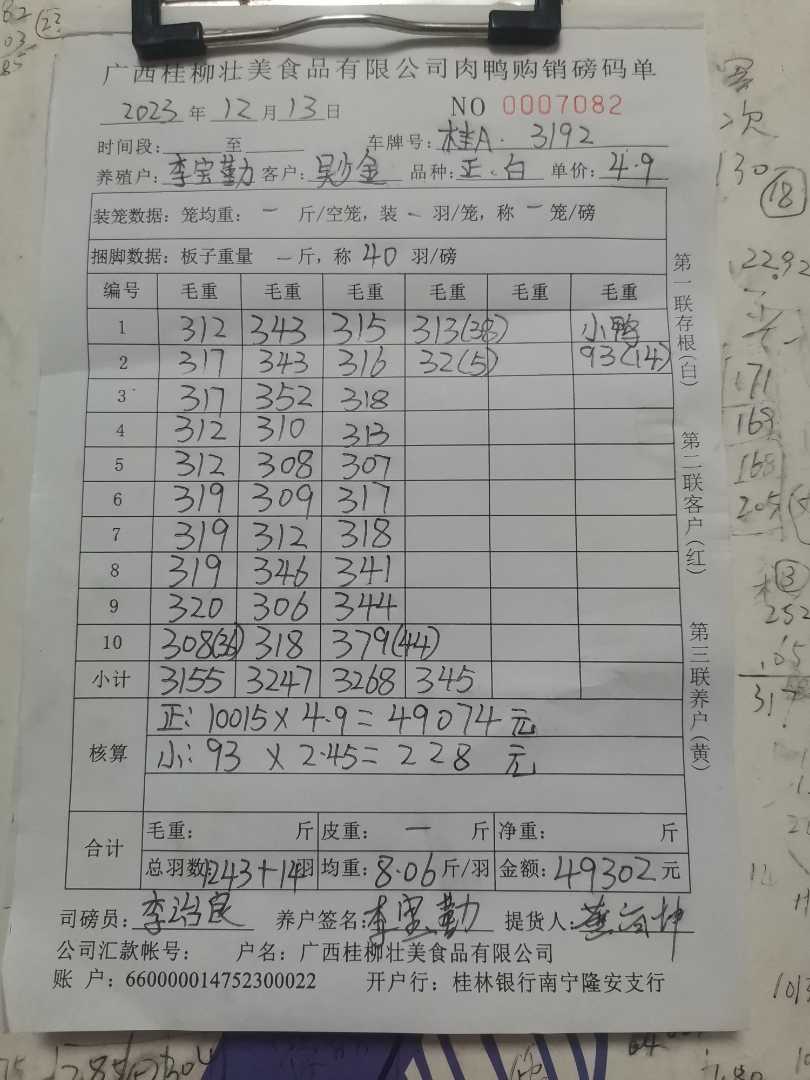 广西桂柳壮美食品有限公司肉鸭购销磅码单
2023年12月13日 NO 0007082
时间段: 至 车牌号: 桂A·3192
养殖户: 李宝勤 客户: 吴少金 品种: 正、白 单价: 4.9
装笼数据: 笼均重: 一 斤/空笼, 装 一 羽/笼, 称 一 笼/磅
捆脚数据: 板子重量 一 斤, 称 40 羽/磅
编号 毛重 毛重 毛重 毛重 毛重 毛重
1 312 343 315 313(38) 小鸭
2 317 343 316 32(5) 93(14)
3 317 352 318
4 312 310 313
5 312 308 307
6 319 309 317
7 319 312 318
8 319 346 341
9 320 306 344
10 308(36) 318 379(44)
小计 3155 3247 3268 345
核算
正: 10015 × 4.9 = 49074 元
小: 93 × 2.45 = 228 元
合计
毛重: 斤 皮重: 一 斤 净重: 斤
总羽数: 1243+14羽 均重: 8.06 斤/羽 金额: 49302 元
司磅员: 李治良 养户签名: 李宝勤 提货人:
公司汇款帐号: 户名: 广西桂柳壮美食品有限公司
账 户: 660000014752300022 开户行: 桂林银行南宁隆安支行
第一联存根(白)
第二联客户(红)
第三联养户(黄)
82
03
85
22
次
130
18
2292
171
169
168
205
3
252
105
317